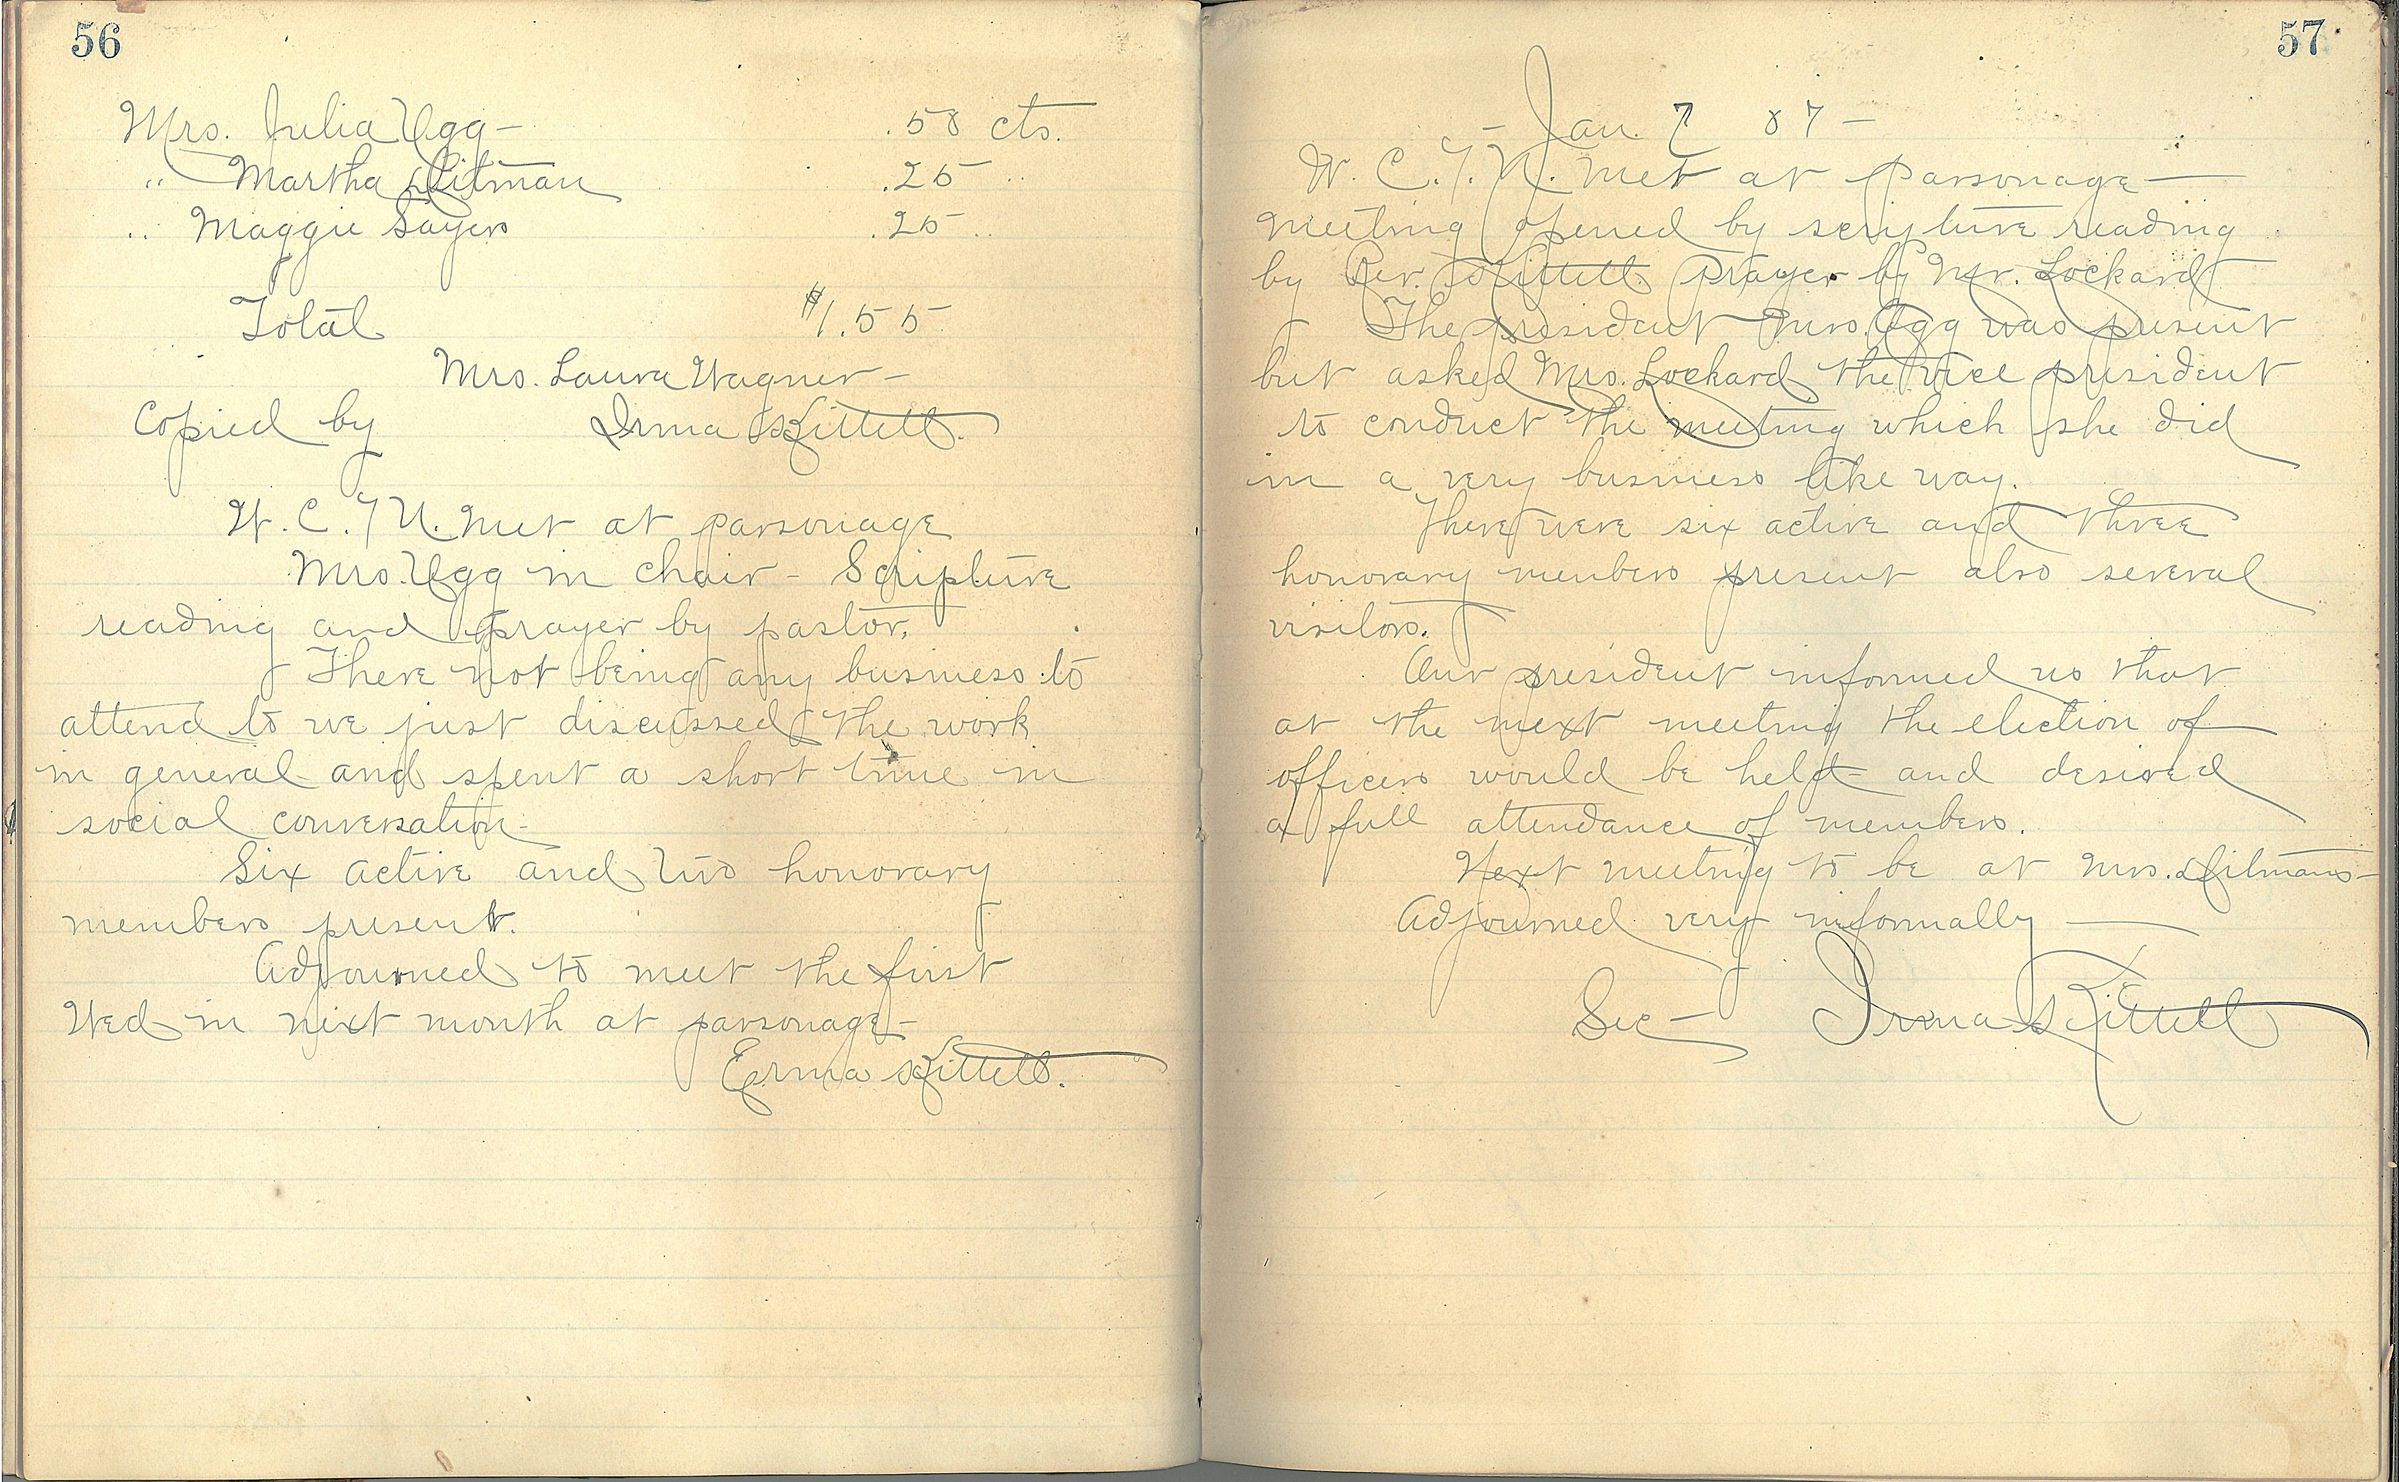 56
Mrs. Julia Ugg — .50 cts.
" Martha Sitman .25 "
" Maggie Sayers .25 "
Total $1.55
Mrs. Laura Wagner —
Copied by Irma Kittell.
W. C. T U. met at parsonage
Mrs. Ugg in chair — Scripture
reading and prayer by pastor.
There not being any business to
attend to we just discussed the work
in general and spent a short time in
social conversation —
Six active and two honorary
members present.
Adjourned to meet the first
Wed in next month at parsonage —
Erma Kittell.
57
— Jan. 7 87 —
W. C. T. U. met at parsonage —
meeting opened by scripture reading
by Rev. Kittell. Prayer by Mr. Lockard
The president Mrs. Ugg was present
but asked Mrs. Lockard the vice president
to conduct the meeting which she did
in a very business like way.
There were six active and three
honorary members present also several
visitors.
Our president informed us that
at the next meeting the election of
officers would be held and desired
a full attendance of members.
Next meeting to be at Mrs. Sitmans —
Adjourned very informally —
Sec — Irma Kittell